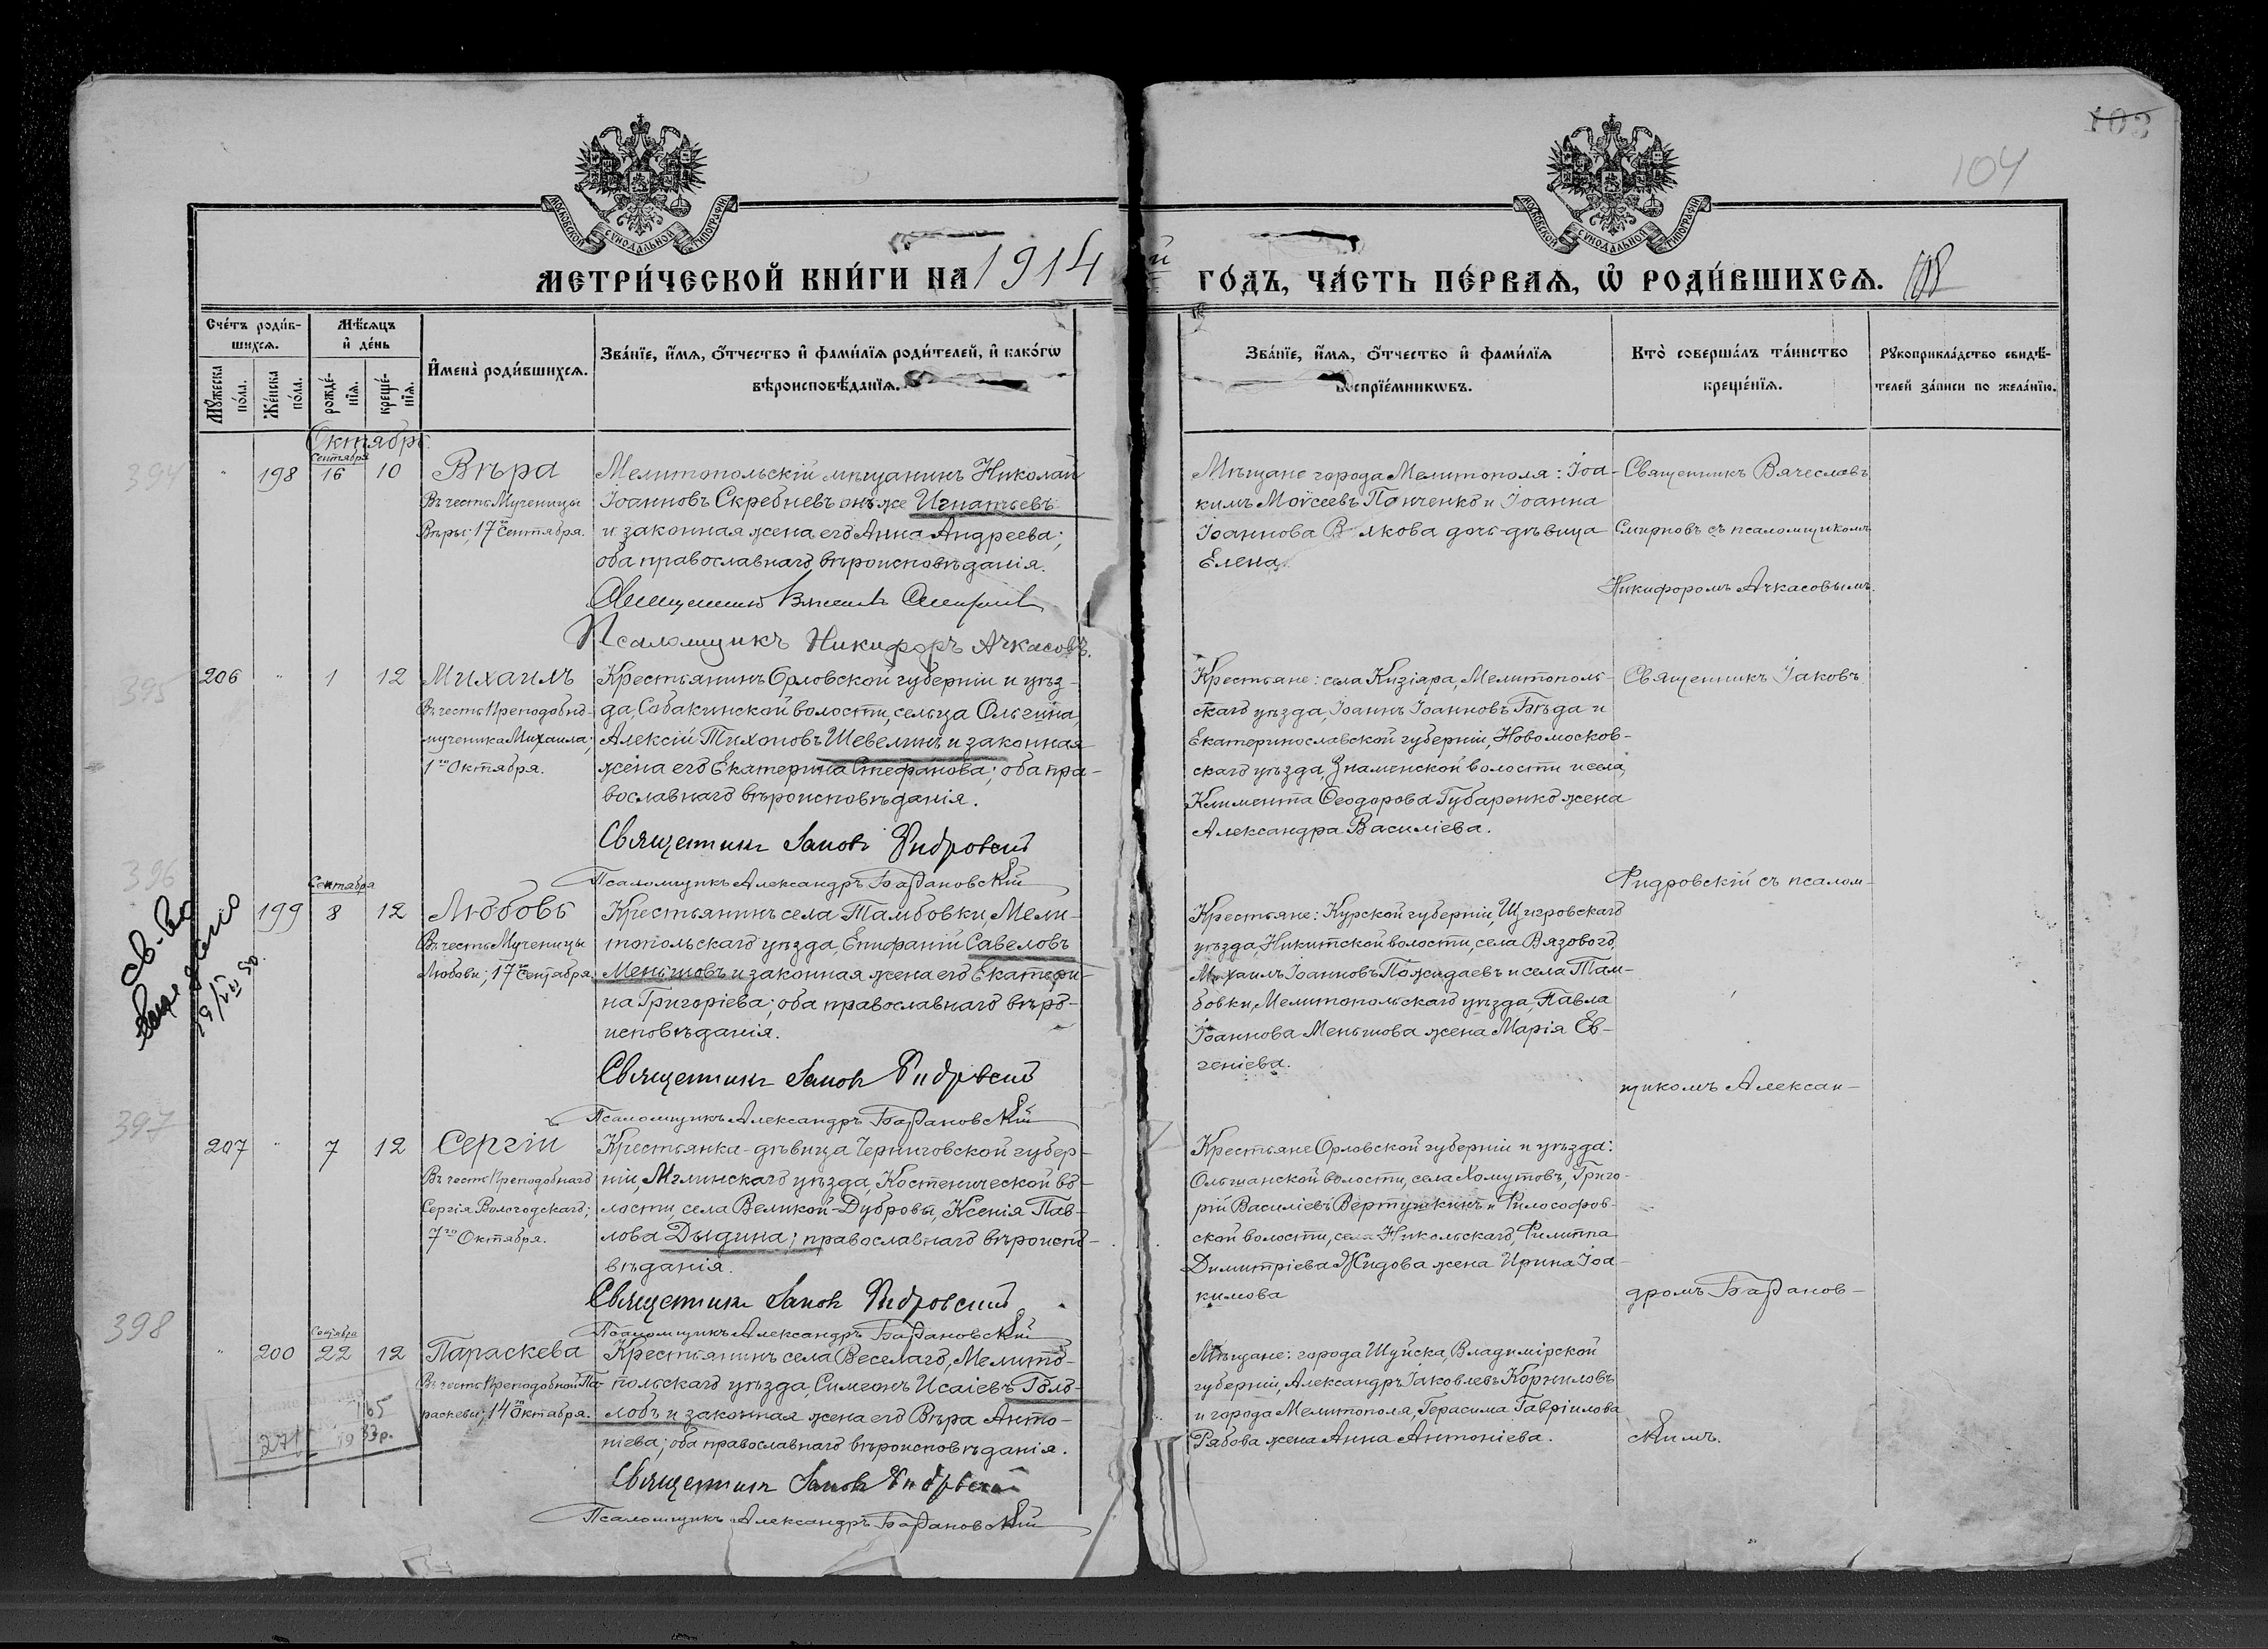 103
104
МОСКОВСКОЙ СѴНОДАЛЬНОЙ ТИПОГРАФІИ
МОСКОВСКОЙ СѴНОДАЛЬНОЙ ТИПОГРАФІИ
МЕТРИ́ЧЕСКОЙ КНИ́ГИ НА 1914 й ГО́ДЪ, ЧА́СТЬ ПЕ́РВАѦ, Ѡ҆ РОДИ́ВШИХСѦ.
Сче́тъ роди́в-
шихсѧ.
Мꙋ́жеска
по́ла.
Же́нска
по́ла.
Мѣ́сѧцъ
и҆ де́нь
рожде́-
нїѧ.
креще́-
нїѧ.
И҆мена̀ роди́вшихсѧ.
Зва́нїе, и҆́мѧ, ѻ҆́тчество и҆ фами́лїѧ роди́телей, и҆ како́гѡ
вѣроисповѣ́данїѧ.
Зва́нїе, и҆́мѧ, ѻ҆́тчество и҆ фами́лїѧ
воспрїе́мникѡвъ.
Кто̀ соверша́лъ та́инство
креще́нїѧ.
Рꙋкоприкла́дство свидѣ́-
телей за́писи по жела́нїю.
Октябрь.
394
198
Сентября
16
10
Вѣра
Въ честь Мученицы
Вѣры; 17го Сентября.
Мелитопольскій мѣщанинъ Николай
Іоанновъ Скребневъ онъ же Игнатьевъ
и законная жена его Анна Андреева;
оба православнаго вѣроисповѣданія.
Псаломщикъ Никифоръ Ачкасовъ.
Мѣщане города Мелитополя: Іоа-
кимъ Моѵсеевъ Панченко и Іоанна
Іоаннова дочь-дѣвица
Елена.
Священникъ Вячеславъ
Смирновъ съ псаломщикомъ
Никифоромъ Ачкасовымъ.
395
206
1
12
Михаилъ
Въ честь Преподобно-
мученика Михаила;
1го Октября.
Крестьянинъ Орловской губерніи и уѣз-
да, Собакинской волости, сельца Ольгина,
Алексій Тихоновъ Шевелинъ и законная
жена его Екатерина Стефанова; оба пра-
вославнаго вѣроисповѣданія.
Священникъ Іаковъ Фидровскій
Псаломщикъ Александръ Барановскій
Крестьяне: села Кизіяра, Мелитополь-
скаго уѣзда, Іоаннъ Іоанновъ Бѣда и
Екатеринославской губерніи, Новомосков-
скаго уѣзда, Знаменской волости и села,
Климента Ѳеодорова Губаренко жена
Александра Василіева.
Священникъ Іаковъ
Фидровскій съ псалом-
396
199
Сентября
8
12
Любовь
Въ честь Мученицы
Любови; 17го Сентября.
Крестьянинъ села Тамбовки, Мели-
топольскаго уѣзда, Епифаній Савеловъ
Меньшовъ и законная жена его Екатери-
на Григоріева; оба православнаго вѣро-
исповѣданія.
Священникъ Іаковъ Фидровскій
Псаломщикъ Александръ Барановскій
Крестьяне: Курской губерніи, Щигровскаго
уѣзда, Никитской волости, села Вязового,
Михаилъ Іоанновъ Пожидаевъ и села Там-
бовки, Мелитопольскаго уѣзда, Павла
Іоаннова Меньшова жена Марія Ев-
геніева.
щикомъ Алексан-
397
207
7
12
Сергій
Въ честь Преподобнаго
Сергія Вологодскаго;
7го Октября.
Крестьянка-дѣвица Черниговской губер-
ніи, Мглинскаго уѣзда, Костенической во-
лости, села Великой-Дубровы, Ксенія Пав-
лова Дыдина; православнаго вѣроиспо-
вѣданія.
Священникъ Іаковъ Фидровскій
Псаломщикъ Александръ Барановскій
Крестьяне Орловской губерніи и уѣзда:
Ольшанской волости, села Хомутовъ, Григо-
рій Василіевъ Вертушкинъ и Философов-
ской волости, села Никольскаго, Филиппа
Димитріева Жидова жена Ирина Іоа-
кимова
дромъ Баранов-
398
200
Сентября
22
12
Параскева
Въ честь Преподобной Па-
раскевы; 14го Октября.
Крестьянинъ села Веселаго, Мелито-
польскаго уѣзда, Симеонъ Исаіевъ Голо-
лобъ и законная жена его Вѣра Анто-
ніева; оба православнаго вѣроисповѣданія.
Священникъ Іаковъ Фидровскій
Псаломщикъ Александръ Барановскій
Мѣщане: города Шуйска, Владимірской
губерніи, Александръ Іаковлевъ Корниловъ
и города Мелитополя, Герасима Гавріилова
Рябова жена Анна Антоніева.
скимъ.